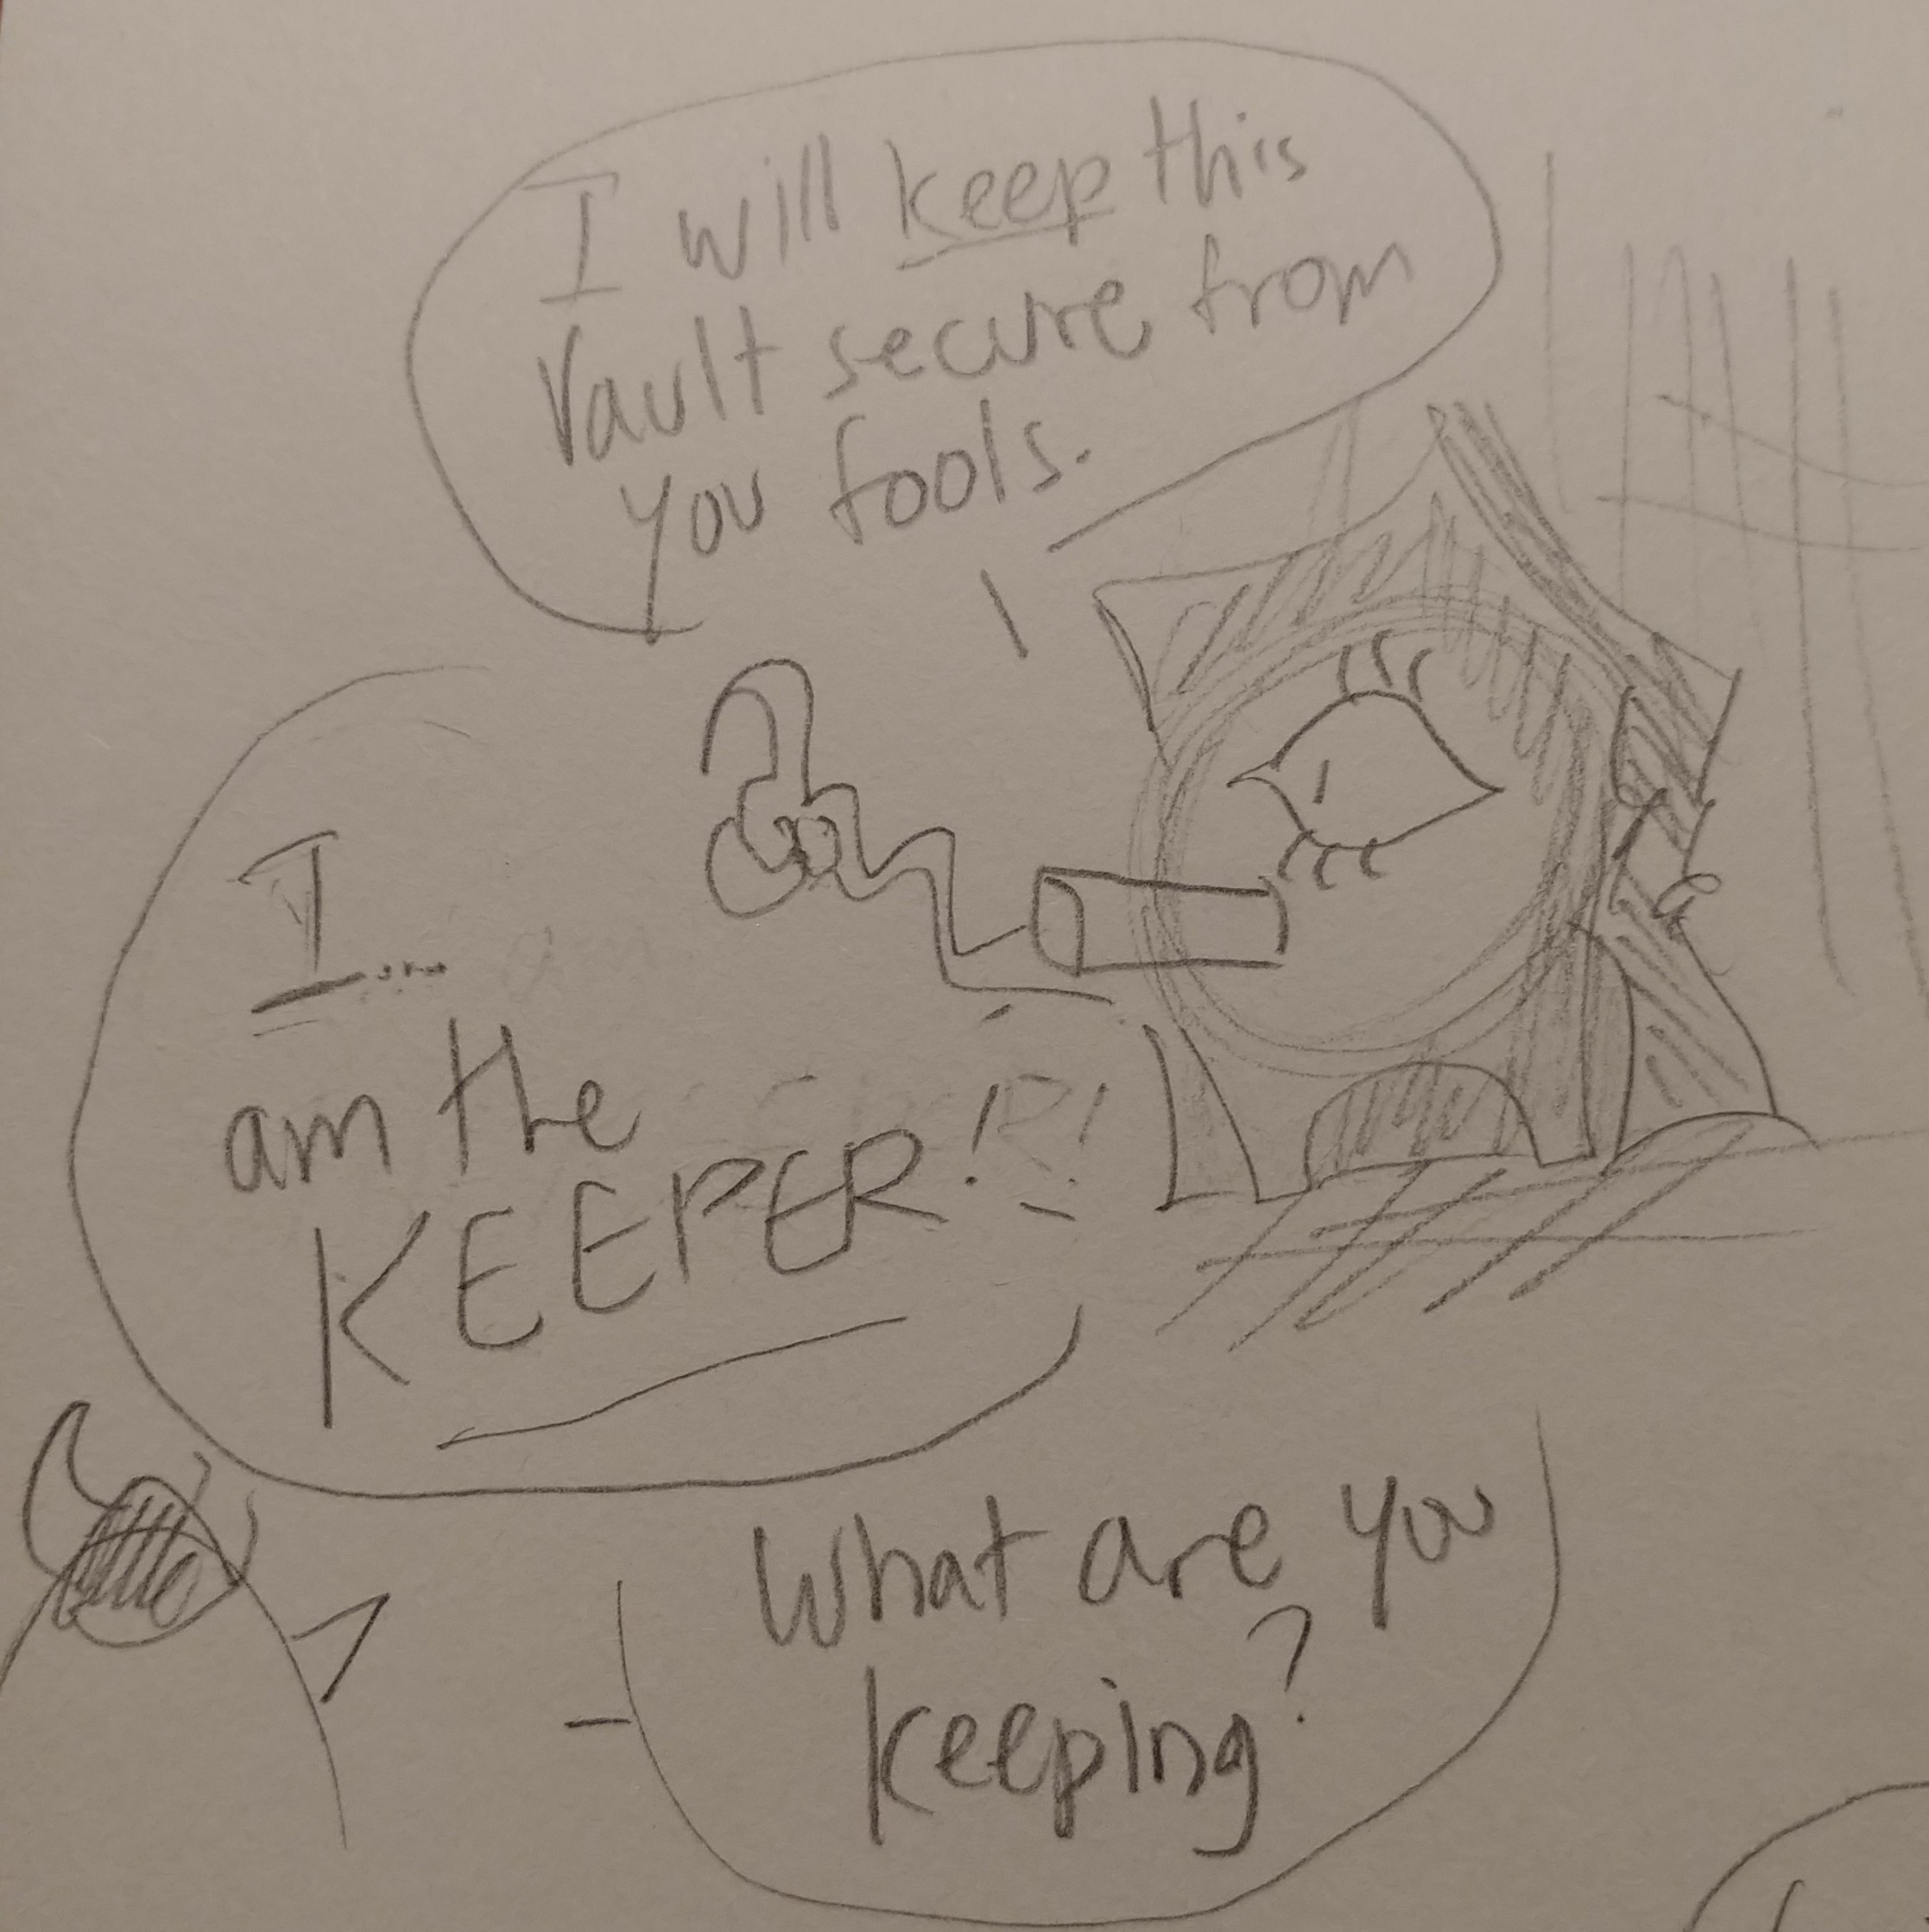 I will keep this
Vault secure from
you fools.
I...
am the
KEEPER!!
What are you
keeping?